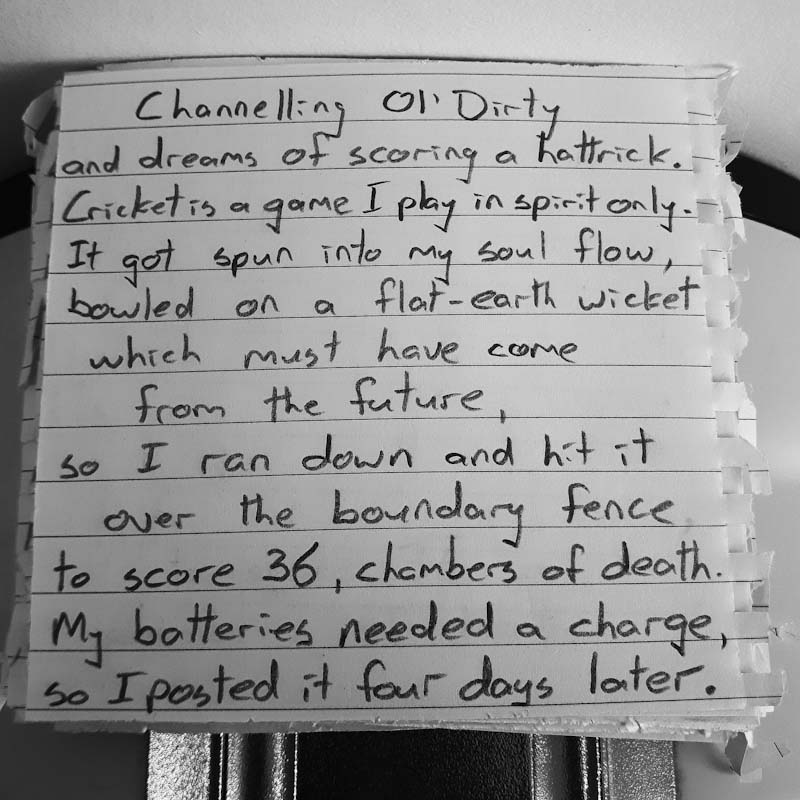 Channelling Ol' Dirty
and dreams of scoring a hattrick.
Cricket is a game I play in spirit only.
It got spun into my soul flow,
bowled on a flat-earth wicket
which must have come
from the future,
so I ran down and hit it
over the boundary fence
to score 36, chambers of death.
My batteries needed a charge,
so I posted it four days later.